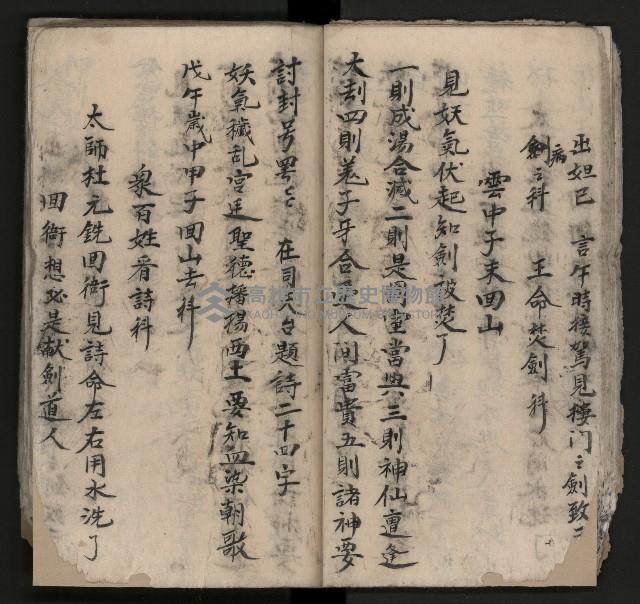 丞妲己　言午時接駕見樓门之劍致二
病
劍之科　王命焚劍科
雲中子未回山
見妖氣伏起知劍被焚了
一則成湯合滅二則是周室當興三則神仙遭逢
大刼四則姜子牙合受人间富貴五則諸神要
討封号畧々　在司天台題詩二十四字
妖氣穢乱宮廷聖德播揚西土要知血染朝歌
戊午歲中甲子回山去科
衆百姓看詩科
太師杜元銑回衙見詩命左右用水洗了
回衙想必是献劍道人
高雄市立歷史博物館
KAOHSIUNG MUSEUM OF HISTORY